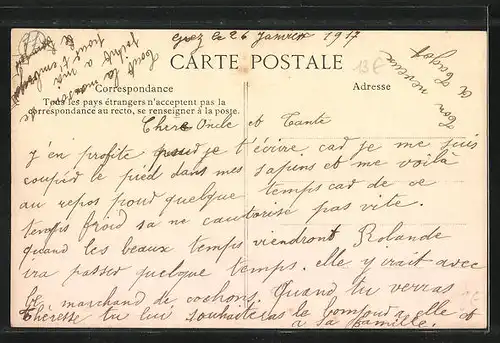 Grez le 26 Janvier 1917
CARTE POSTALE
Correspondance
Adresse
Tous les pays étrangers n'acceptent pas la
correspondance au recto, se renseigner à la poste.
13 €
Chers Oncle et Tante
j'en profite pour je t'écrire cad je me suis
coupé le pied dans mes sapins et me voilà
au repos pour quelque temps cad de ce
temps froid sa ne cautorise pas vite.
quand les beaux temps viendront Rolande
ira passer quelque temps. elle y irait avec
le marchand de cochons. Quand tu verras
Theresse tu lui souhaiteras le bonjour a elle et
a sa famille.
Tout la maison
joint a moi
pour t'embrasser
Ton neveux